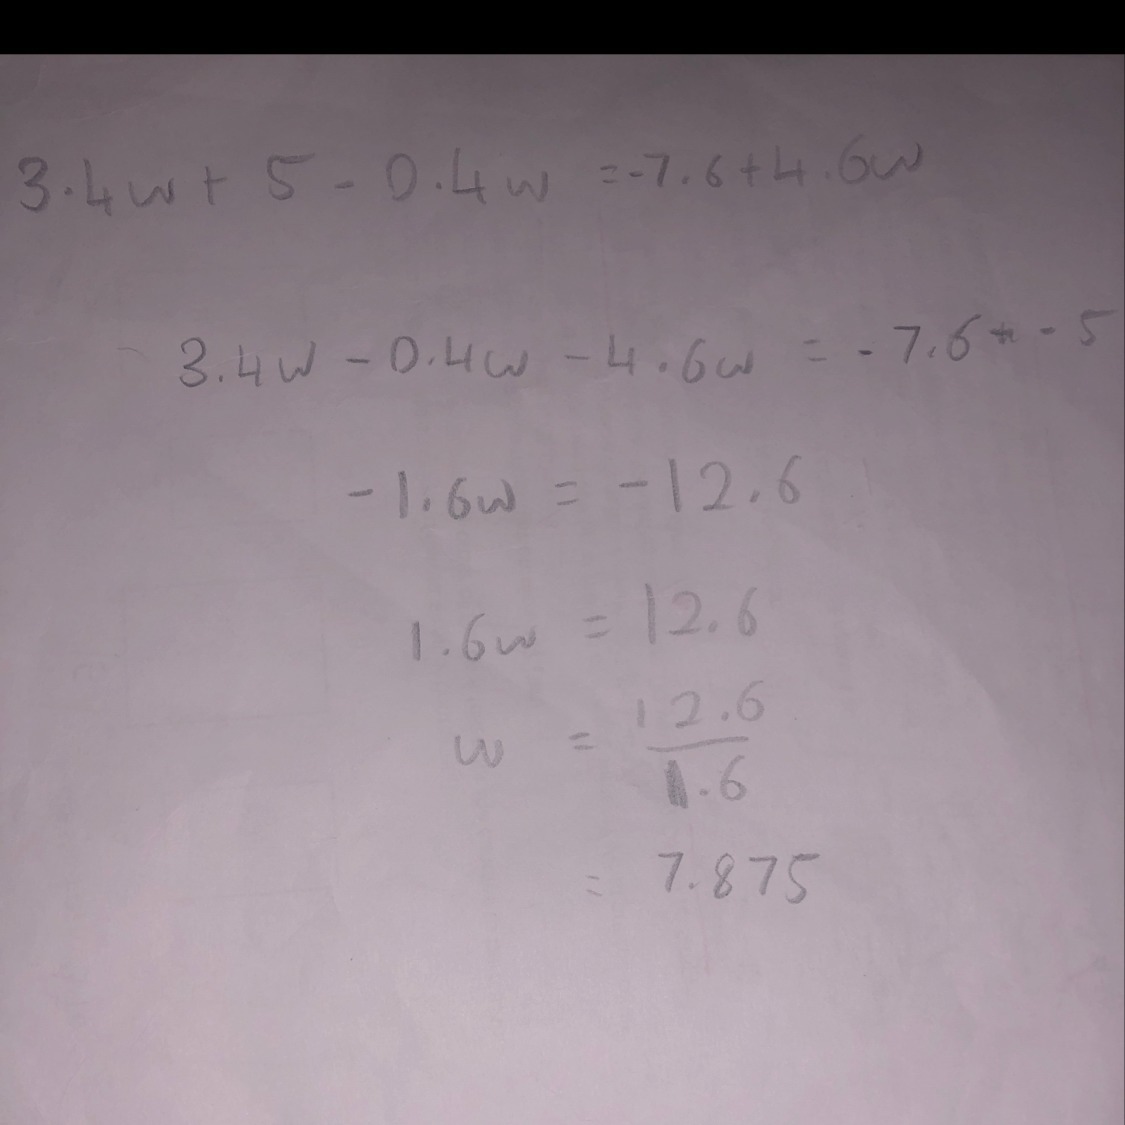 3.4w + 5 - 0.4w = -7.6 + 4.6w
3.4w - 0.4w - 4.6w = -7.6 + - 5
-1.6w = -12.6
1.6w = 12.6
w = 12.6/1.6
= 7.875